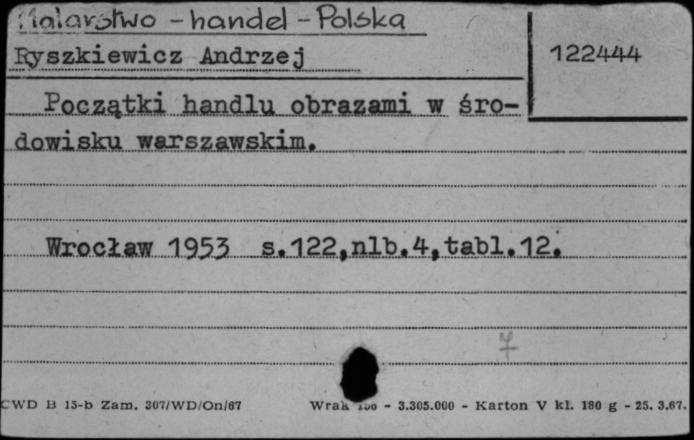 Malarstwo - handel - Polska
Ryszkiewicz Andrzej
122444
Początki handlu obrazami w śro-
dowisku warszawskim.
Wrocław 1953 s.122,nlb.4,tabl.12.
CWD B 15-b Zam. 307/WD/On/67 Wrak - 3.305.000 - Karton V kl. 180 g - 25. 3.67.